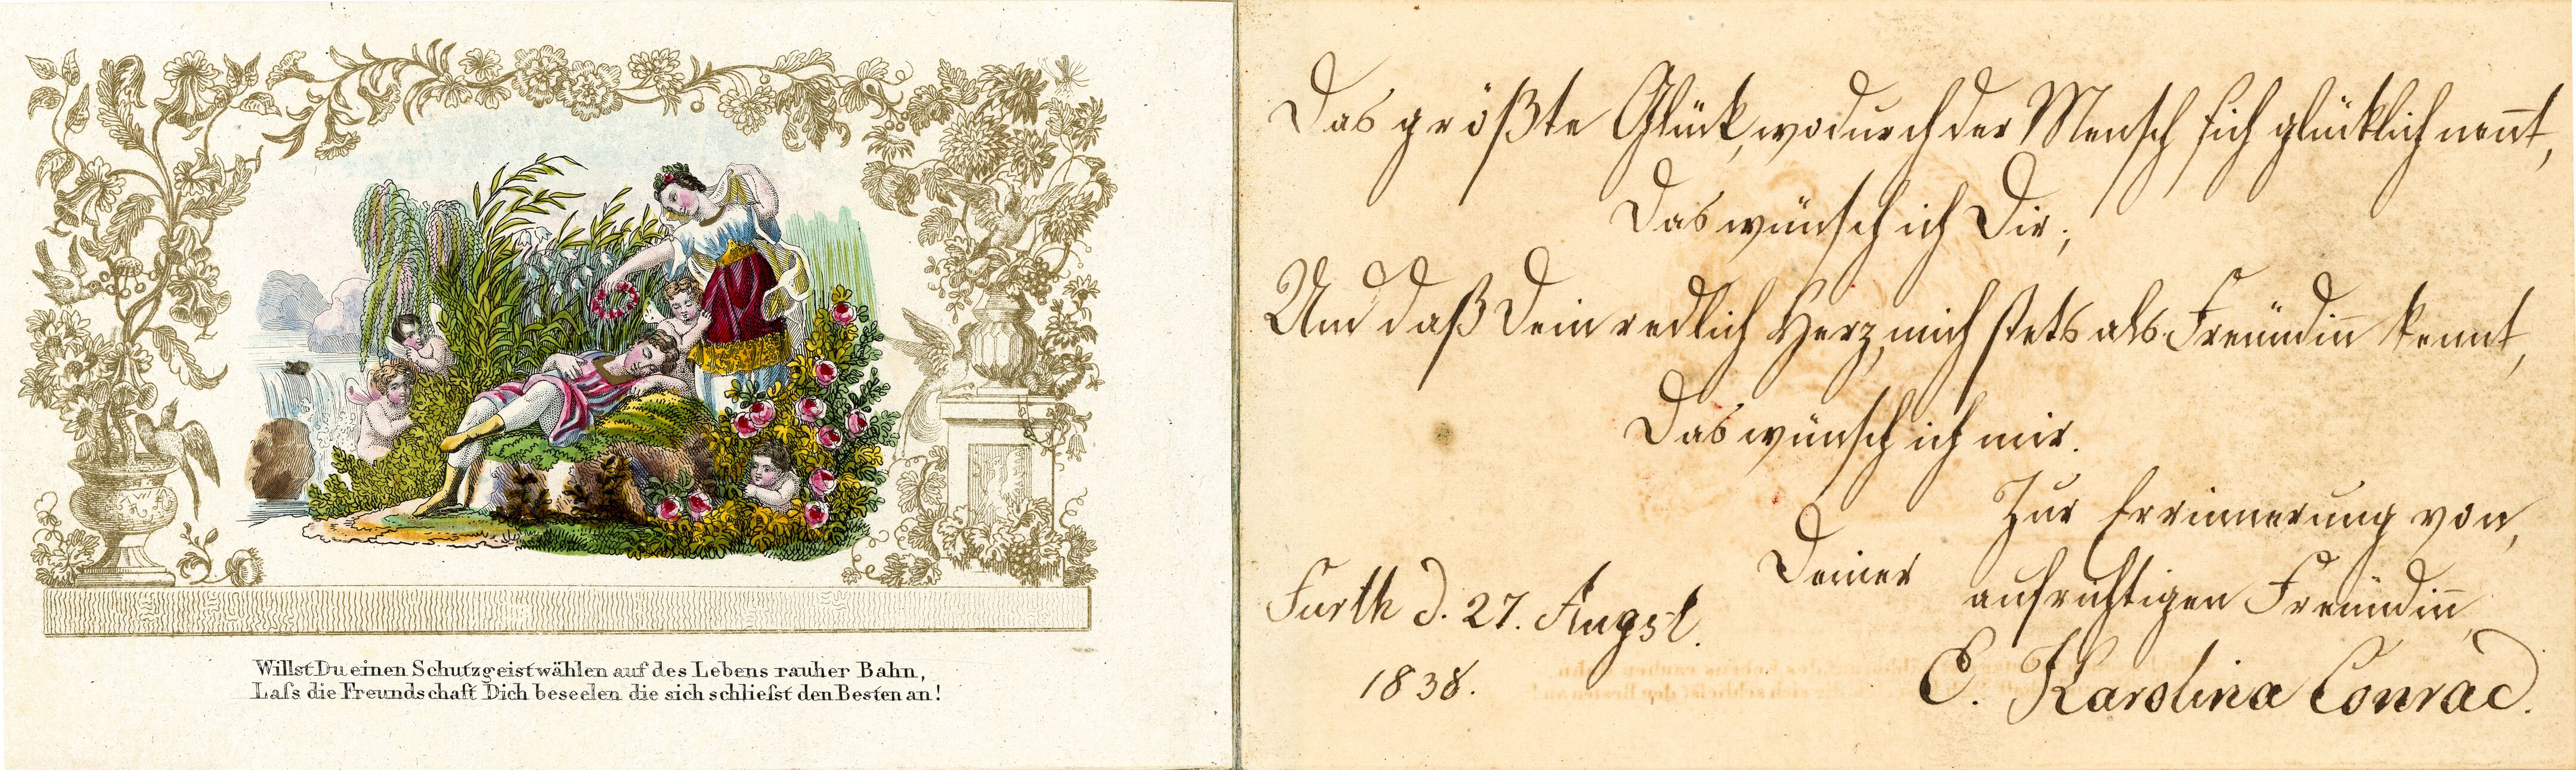 Willst Du einen Schutzgeist wählen auf des Lebens rauher Bahn,
Laſs die Freundschaft Dich beseelen die sich schlieſst den Besten an!
Das größte Glück, wodurch der Mensch sich glücklich nen̅t,
Das wünsch ich Dir;
Um daß Dein redlich Herz, mich stets als Freündin̅ kennt,
Das wünsch ich mir.
Zur Errinnerung von,
Deiner aufrichtigen Freündin̅,
Furth d. 27. Augst.
1838.
E. Karolina Conrad.